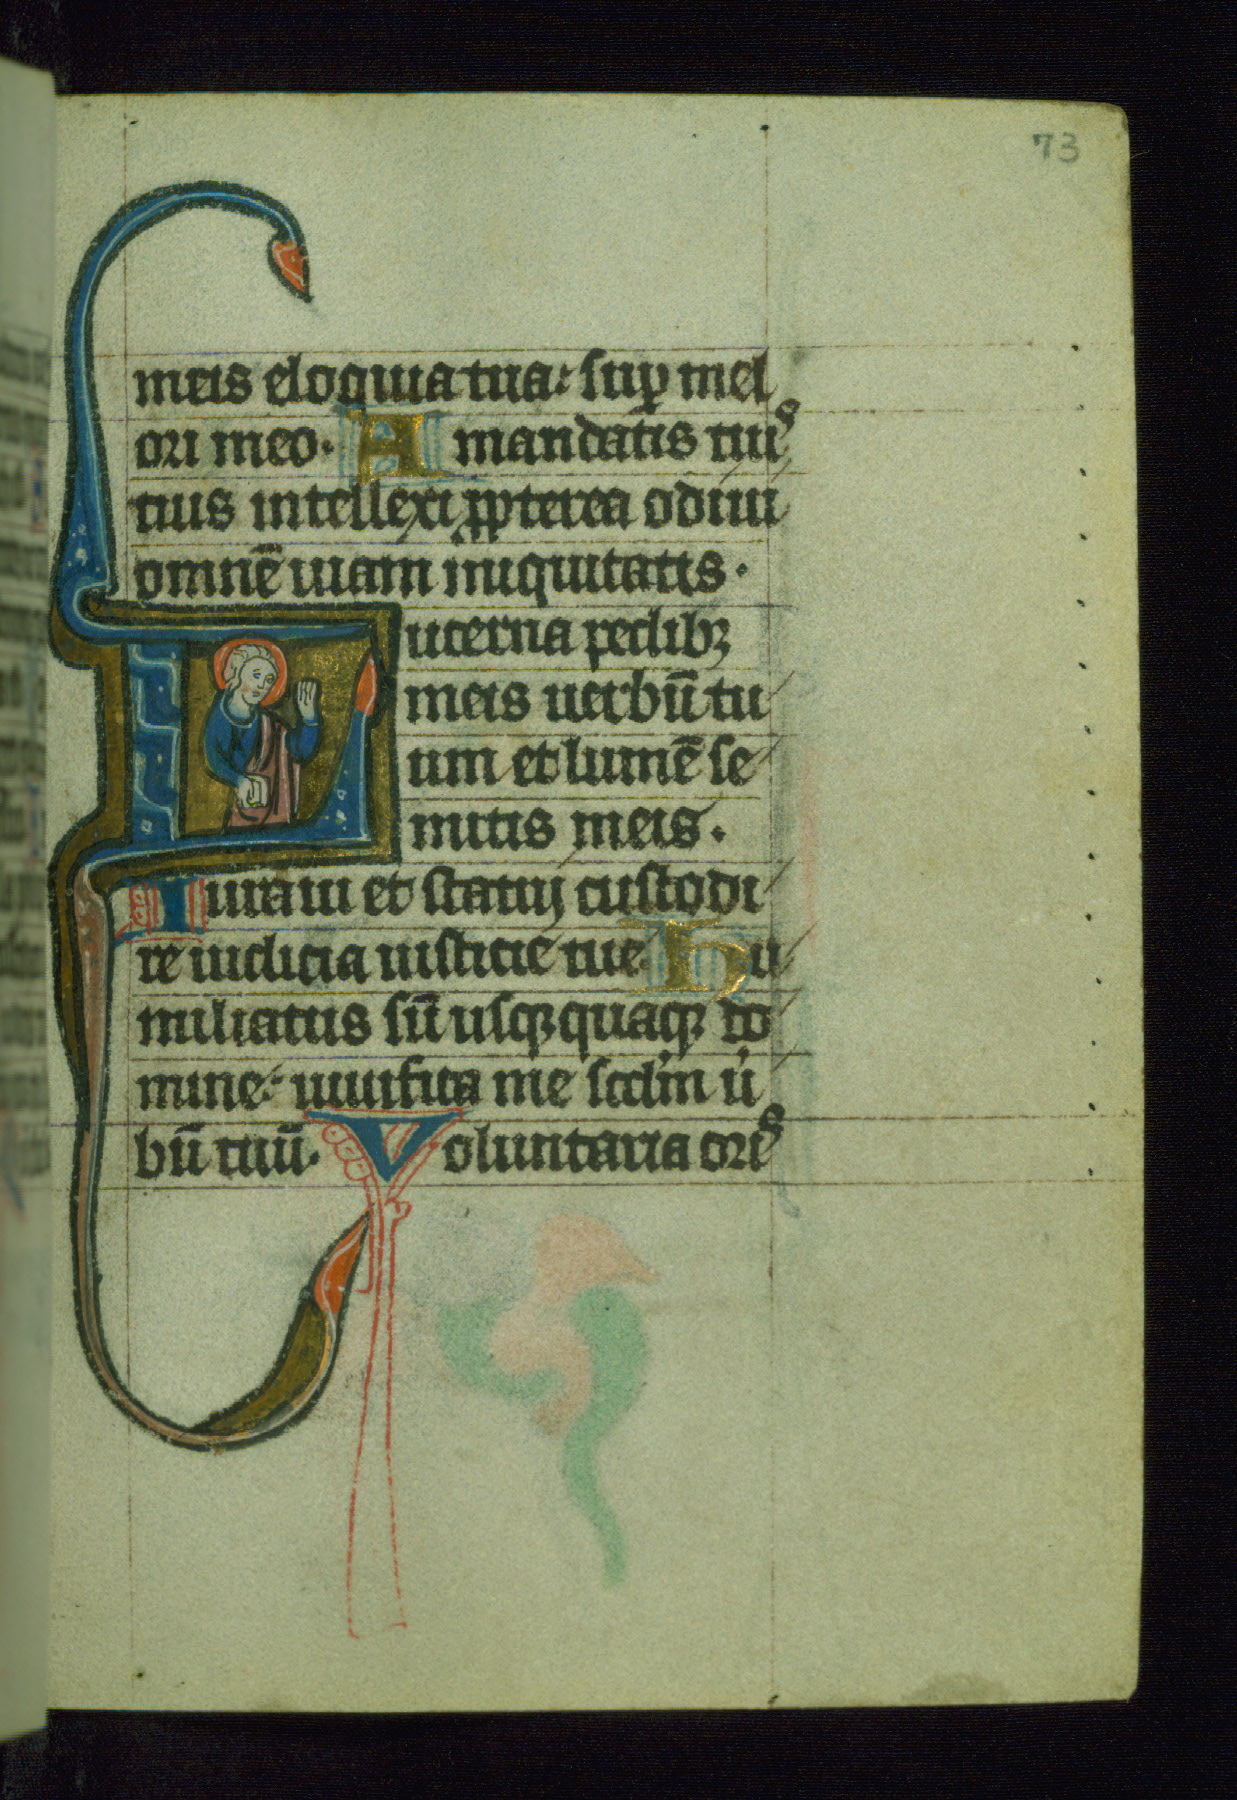 73
meis eloquia tua: sup mel
ori meo. A mandatis tuis
tuis intellexi ppterea odiui
omnē uiam iniquitatis.
Lucerna pedibꝫ
meis uerbū tu
um et lumē se
mitis meis.
Iuraui et statuj custodi
re iudicia iusticie tue. Hu
miliatus sū usqꝫquaqꝫ do
mine: uiuifica me scdm u
bū tuū. Voluntaria oris